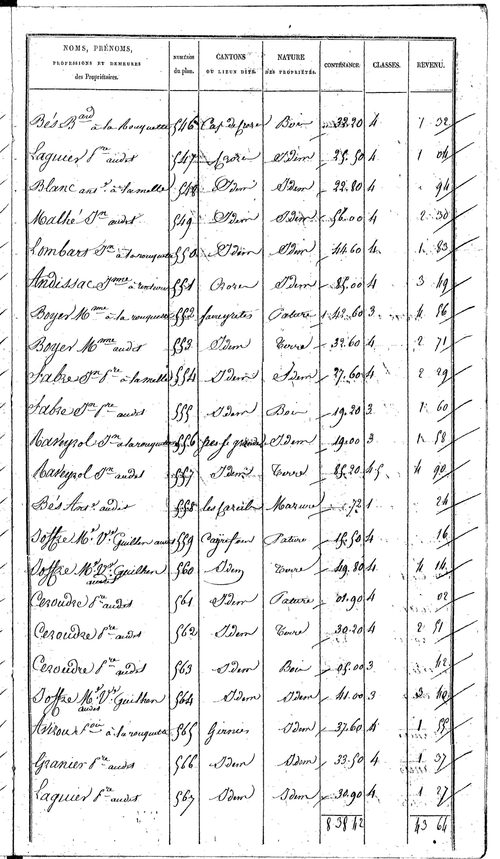 NOMS, PRÉNOMS, PROFESSIONS ET DEMEURES des Propriétaires. NUMÉRO du plan. CANTONS OU LIEUX DITS. NATURE DES PROPRIÉTÉS. CONTENANCE. CLASSES. REVENU.
Bés Bard à la Rouquette 546 Cap de Crore Bois 32.20 4 1 32
Laquier Pre audit 547 Crore Idem 25.50 4 1 04
Blanc ant. à lamelle 548 Idem Idem 22.80 4 94
Mathé Jn audit 549 Idem Idem 56.00 4 2 30
Lombart Jn à la rouquette 550 Idem Idem 44.60 4 1 83
Andissac à 551 Idem 85.00 4 3 49
Boyer Mme à la rouquette 552 faueyretes Pature 1 42.60 3 4 56
Boyer Mme audit 553 Idem Terre 32.60 4 2 71
Fabre Jn Pre à lamelle 554 Idem Idem 27.60 4 2 29
Fabre Jn Pre audit 555 Idem Bois 19.20 3 1 60
Maruejol Jn à la rouquette 556 Idem 19.00 3 1 58
Maruejol Jn audit 557 Idem Terre 85.20 4 90
Bés Ant. audit 558 Mazure 72 1 24
Joffre Mr Vr Guilhen audit 559 Cayrefour Pature 15.50 4 16
Joffre Mr Vr Guilhen audit 560 Idem Terre 49.80 4 4 14
Ceroudre Pre audit 561 Idem Pature 01.90 4 02
Ceroudre Pre audit 562 Idem Terre 30.20 4 2 51
Ceroudre Pre audit 563 Idem Bois 05.00 3 42
Joffre Mr Vr Guilhen audit 564 Idem Idem 41.00 3 3 40
à la rouquette 565 Idem 37.60 4 1 55
Granier Pre audit 566 Idem Idem 33.50 4 1 37
Laquier Pre audit 567 Idem Idem 30.90 4 1 27
8 38 42 43 64